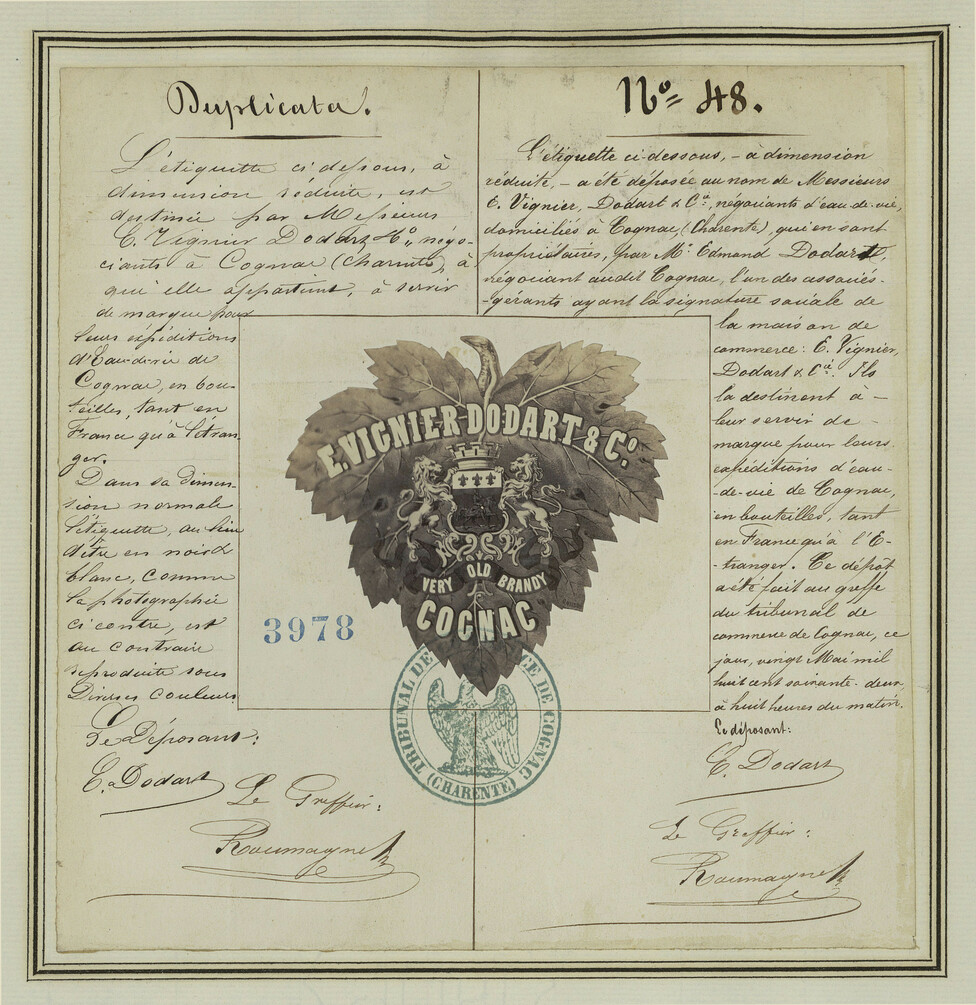 Duplicata.
L'étiquette ci dessous, à
dimension réduite, est
destinée par Messieurs
E. Vignier Dodart & Co, négo-
ciants à Cognac (Charente) à
qui elle appartient, à servir
de marque pour
leurs expéditions
d'Eau-de-vie de
Cognac, en bou-
teilles, tant en
France qu'à l'étran-
ger.
Dans sa dimen-
sion normale
l'étiquette, au lieu
d'être en noir &
blanc, comme
la photographie
ci contre, est
au contraire
reproduite sous
diverses couleurs
Le Déposant:
E. Dodart
Le Greffier:
Roumagne
No 48.
L'étiquette ci-dessous, - à dimension
réduite, - a été déposée au nom de Messieurs
E. Vignier, Dodart & Cie, négociants d'eau-de-vie,
domiciliés à Cognac (Charente), qui en sont
propriétaires, par Mr Edmond Dodart,
négociant audit Cognac, l'un des associés-
-gérants ayant la signature sociale de
la maison de
commerce: E. Vignier,
Dodart & Cie. Ils
la destinent à -
leur servir de -
marque pour leurs
expéditions d'eau-
-de-vie de Cognac,
en bouteilles, tant
en France qu'à l'E-
-tranger. Ce dépôt
a été fait au greffe
du tribunal de
commerce de Cognac, ce
jour, vingt Mai mil
huit cent soixante-deux
à huit heures du matin.
Le déposant:
E. Dodart
Le Greffier:
Roumagne
E. VIGNIER-DODART & Co.
VERY OLD BRANDY
COGNAC
3978
TRIBUNAL DE COMMERCE DE COGNAC
(CHARENTE)